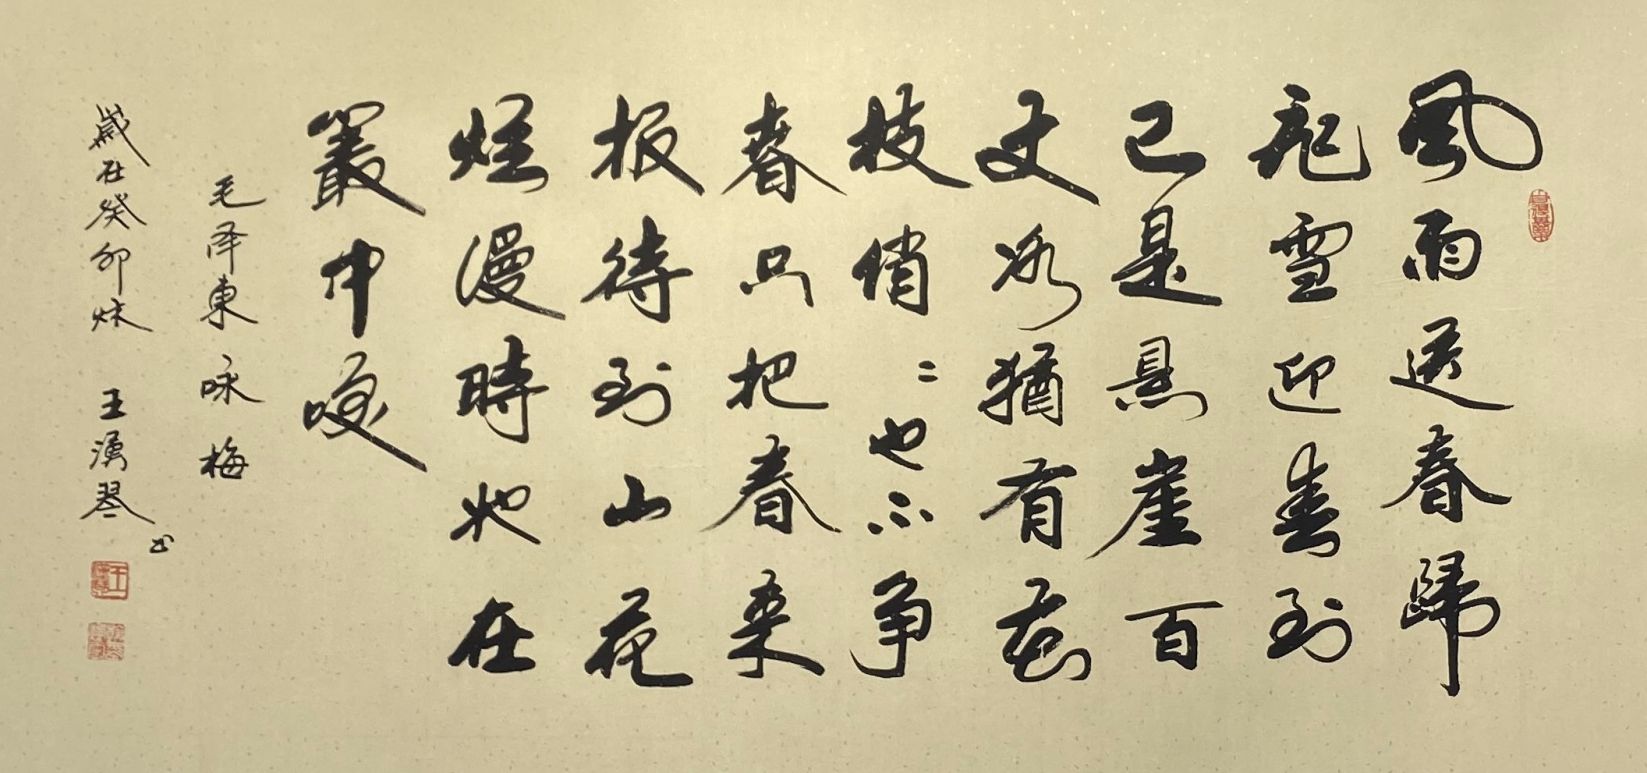 风雨送春歸
飛雪迎春到
已是悬崖百
丈冰猶有花
枝俏〻也不争
春只把春来
报待到山花
烂漫時她在
叢中咲
毛泽東咏梅
歲在癸卯秋 王湧琴书